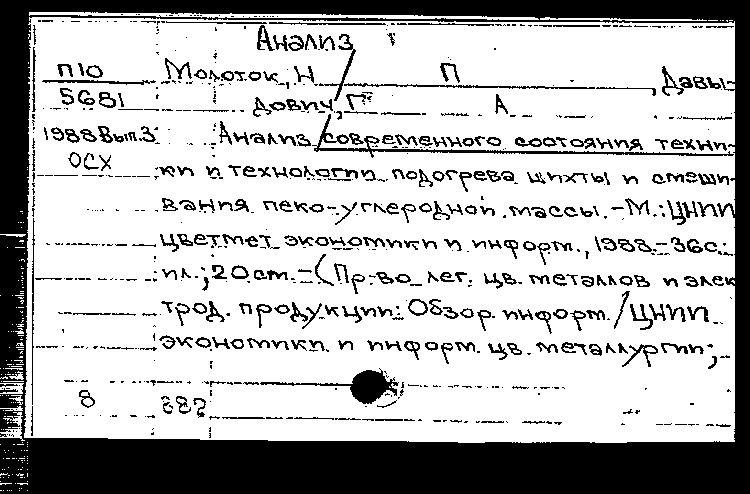 Анализ
П10 Молоток, Н П , Давы-
5681 дович, Г А
1988 Вып.3 Анализ современного состояния техни-
ОСХ ки и технологии подогрева шихты и смеши-
вания пеко-углеродной массы. - М.: ЦНИИ
цветмет экономики и информ., 1988. - 36 с.:
ил.; 20 см. - (Пр-во лег. цв. металлов и элек
трод. продукции: Обзор. информ. / ЦНИИ
экономики и информ. цв. металлургии;
8 888